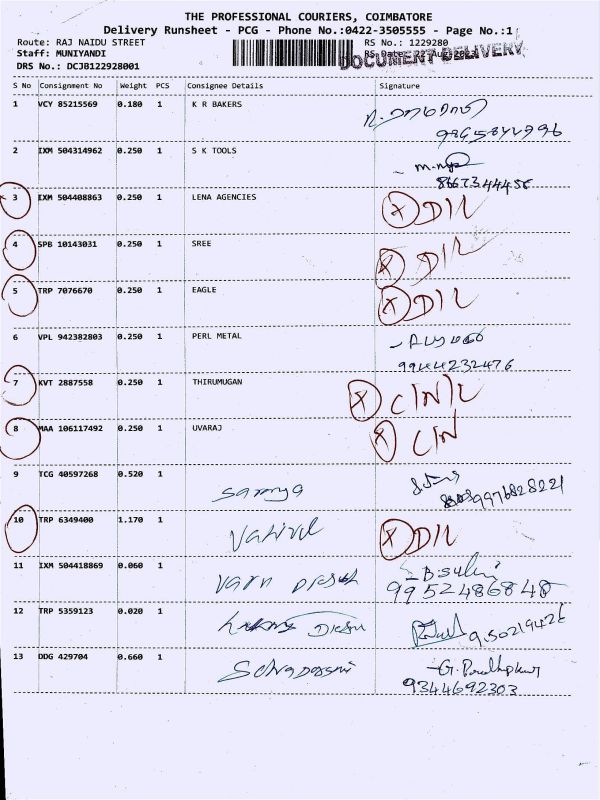 THE PROFESSIONAL COURIERS, COIMBATORE
Delivery Runsheet - PCG - Phone No.:0422-3505555 - Page No.:1
Route: RAJ NAIDU STREET RS No.: 1229280
Staff: MUNIYANDI RS Date: 22 Aug 2023
DOCUMENT DELIVERY
DRS No.: DCJB122928001
S No Consignment No Weight PCS Consignee Details Signature
1 VCY 85215569 0.180 1 K R BAKERS
2 IXM 504314962 0.250 1 S K TOOLS
3 IXM 504408863 0.250 1 LENA AGENCIES X D/L
4 SPB 10143031 0.250 1 SREE X D/L
5 TRP 7076670 0.250 1 EAGLE X D/L
6 VPL 942382803 0.250 1 PERL METAL
9944232476
7 KVT 2887558 0.250 1 THIRUMUGAN X C/N/L
8 MAA 106117492 0.250 1 UVARAJ X C/N
9 TCG 40597268 0.520 1 Saranya
9976828221
10 TRP 6349400 1.170 1 X D/L
11 IXM 504418869 0.060 1 B.Suhi
9952486848
12 TRP 5359123 0.020 1 9150219426
13 DDG 429704 0.660 1
9344692303